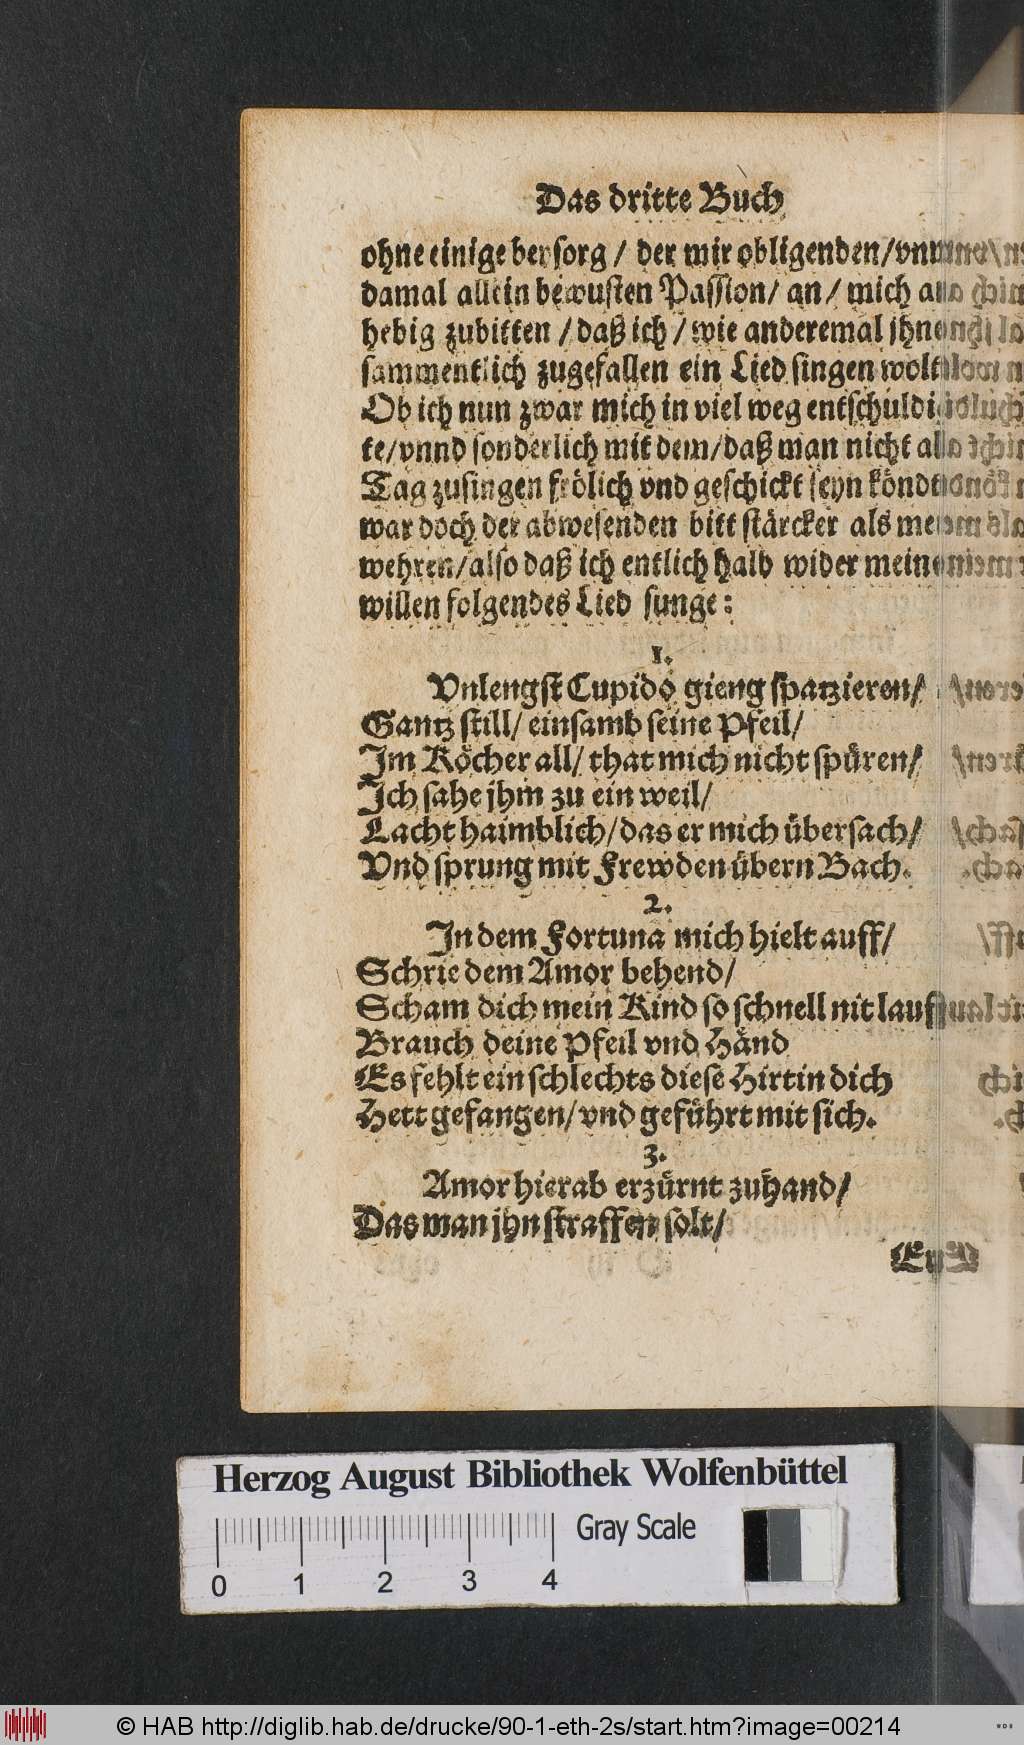 Das dritte Buch
ohne einige besorg / der mir obligenden / vnnd
damal allein bewusten Passion / an / mich
hebig zubitten / daß ich / wie anderemal jhn
sammentlich zugefallen ein Lied singen wolt
Ob ich nun zwar mich in viel weg entschuldi
te / vnnd sonderlich mit dem / daß man nicht all
Tag zusingen frölich vnd geschickt seyn köndt
war doch der abwesenden bitt stärcker als mein
wehren / also daß ich entlich halb wider meinen
willen folgendes Lied sunge:
1.
Vnlengst Cupido gieng spatzieren /
Gantz still / einsamb seine Pfeil /
Im Köcher all / that mich nicht spüren /
Ich sahe jhm zu ein weil /
Lacht haimblich / das er mich übersach /
Vnd sprung mit Frewden übern Bach.
2.
In dem Fortuna mich hielt auff /
Schrie dem Amor behend /
Scham dich mein Kind so schnell nit lauff
Brauch deine Pfeil vnd Händ
Es fehlt ein schlechts diese Hirtin dich
Hett gefangen / vnd geführt mit sich.
3.
Amor hierab erzürnt zuhand /
Das man jhn straffen solt /
Herzog August Bibliothek Wolfenbüttel
Gray Scale
0 1 2 3 4
© HAB http://diglib.hab.de/drucke/90-1-eth-2s/start.htm?image=00214